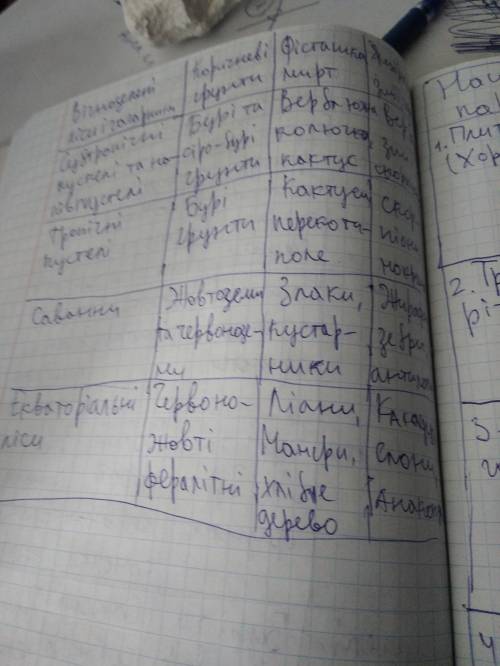 Вічнозелені
ліси і чагарники
Коричневі
грунти
Фісташка
мирт
Субтропічні
пустелі та на-
півпустелі
Бурі та
сіро-бурі
грунти
Верблюжа
колючка
кактус
Тропічні
пустелі
Бурі
грунти
Кактуси
перекоти-
поле
скор
піони
Савани
Жовтоземи
та червонозе-
ми
Злаки,
кустар-
ники
Жираф
зебри
антилопи
Екваторіальні
ліси
Червоно-
жовті
фералітні
Ліани,
Мангри,
хлібне
дерево
Слони,
Анаконд
1. Плит
(Хор
2. Тр
рі
3.
4